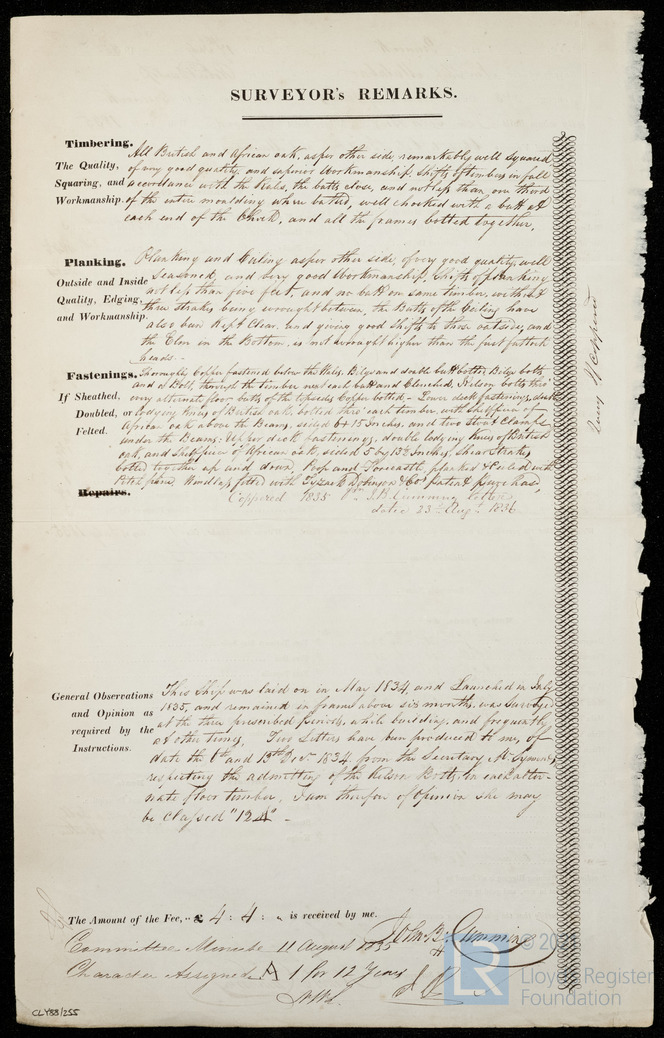 SURVEYOR's REMARKS.
Timbering.
The Quality,
Squaring, and
Workmanship.
All British and African oak, as per other side, remarkably well squared
of very good quality, and superior Workmanship, Shifts of timbers in full
accordance with the Rules, the butts close, and not less than one third
of the entire moulding where butted, well chocked with a butt at
each end of the Chock, and all the frames bolted together,
Planking.
Outside and Inside
Quality, Edging,
and Workmanship.
Planking and Ceiling as per other side, of very good quality, well
Seasoned, and very good Workmanship, Shifts of planking
not less than five feet, and no butt on same timber, without
three strakes being wrought between, the Butts of the Ceiling have
also been kept Clear, and giving good shift to those outside, and
the Elm in the Bottom, is not wrought higher than the first futtock
heads. -
Fastenings.
If Sheathed,
Doubled, or
Felted.
Thoroughly Copper fastened below the Wales, Bilge and double butt bolts, Bilge bolts
and a Bolt, through the timber next each butt and Clenched, Kelson bolts thro'
every alternate floor, butts of the topsides Copper bolted, - Lower deck fastenings, double
Lodging Knees of British oak, bolted thro' each timber, with Shelfpiece of
African oak above the Beams, sided 6 & 15 Inches, and two Clamps
under the Beams: Upper deck fastenings, double lodging Knees of British
oak, and Shelfpiece of African oak, sided 5 by 13½ Inches, Shear Strakes
bolted together up and down Poop and Forecastle, planked & Ceiled with
pine Windlass fitted with Tyzack Dobinson & Co's patent purchase,
Repairs.
Coppered 1835 J.B. Cumming letter
dated 23rd Augt. 1836
Wexford
General Observations
and Opinion as
required by the
Instructions.
This Ship was laid on in May 1834, and Launched in July
1835, and remained in frame above six months, was Surveyed
at the three prescribed periods, while building, and frequently
at other times, Two Letters have been produced to me, of
date the and 13th Decr. 1834, from the Secretary Mr.
respecting the admitting of the Kelson Bolts, in each alter-
nate floor timber, I am therefore of Opinion she may
be Classed "12 A" -
The Amount of the Fee, £ 4 : 4 : is received by me.
John B. Cumming
Committee Minute 11 August 1835
Character Assigned A 1 for 12 Years
CLY88/255
LR
Lloyds Register
Foundation